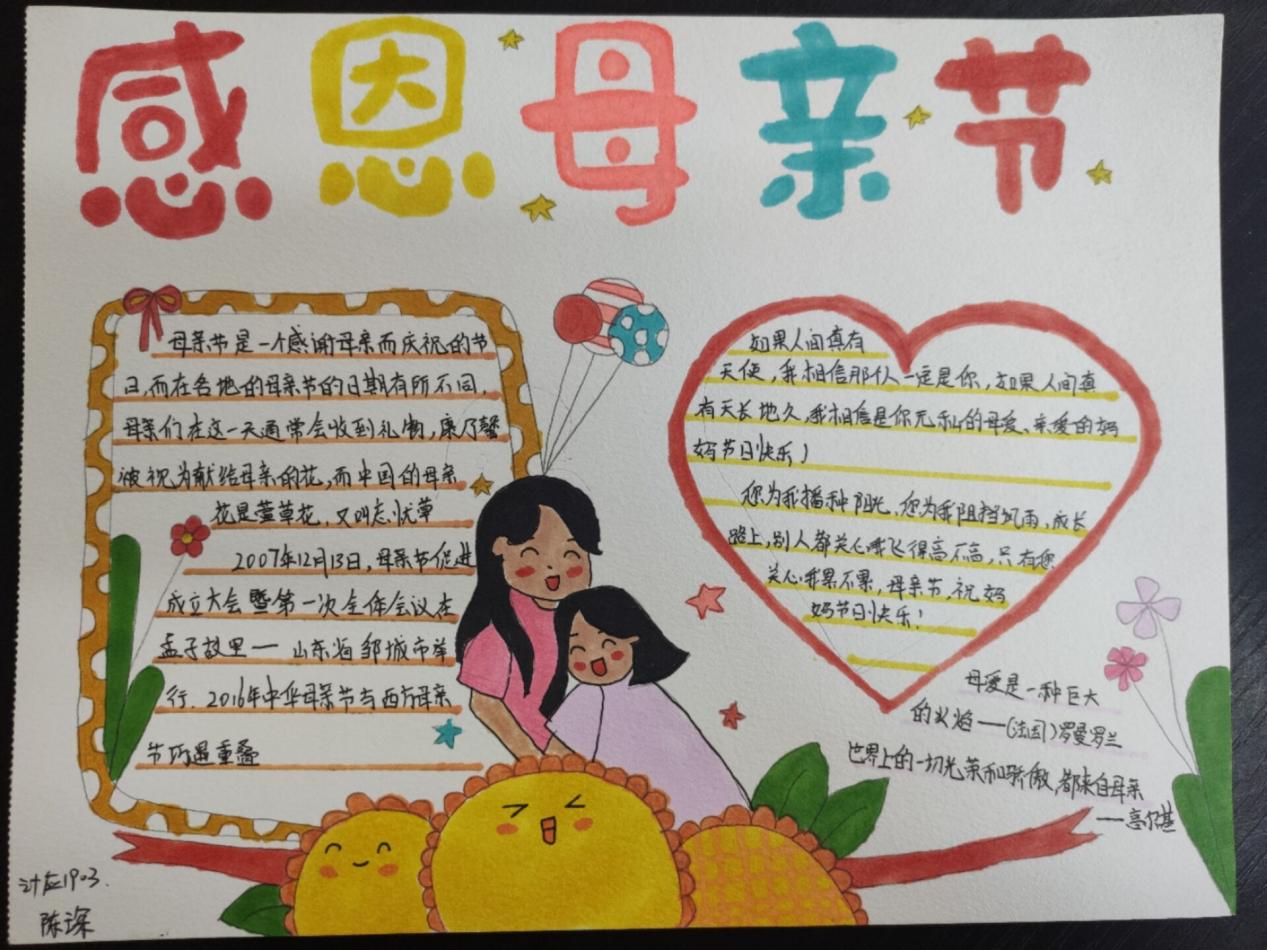 感恩母亲节
母亲节是一个感谢母亲而庆祝的节
日,而在各地的母亲节的日期有所不同,
母亲们在这一天通常会收到礼物,康乃馨
被视为献给母亲的花,而中国的母亲
花是萱草花,又叫忘忧草
2007年12月13日,母亲节促进
成立大会暨第一次全体会议在
孟子故里——山东省邹城市举
行.2016年中华母亲节与西方母亲
节巧遇重叠
如果人间真有
天使,我相信那仅一定是你,如果人间真
有天长地久,我相信是你无私的母爱、亲爱的妈
妈节日快乐!
您为我播种阳光,您为我阻挡风雨,成长
路上,别人都关心我飞得高不高,只有您
关心我累不累,母亲节,祝妈
妈节日快乐!
母爱是一种巨大
的火焰——(法国)罗曼罗兰
世界上的一切光荣和骄傲,都来自母亲
——高尔基
计应1903.
陈琛